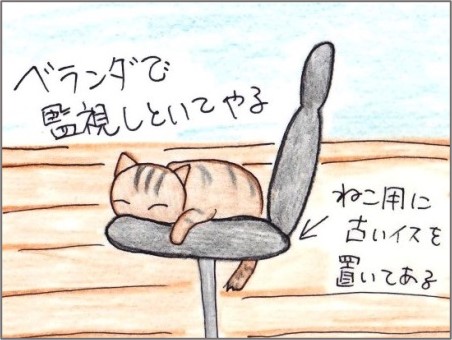 ベランダで
監視しといてやる
ねこ用に
古いイスを
置いてある